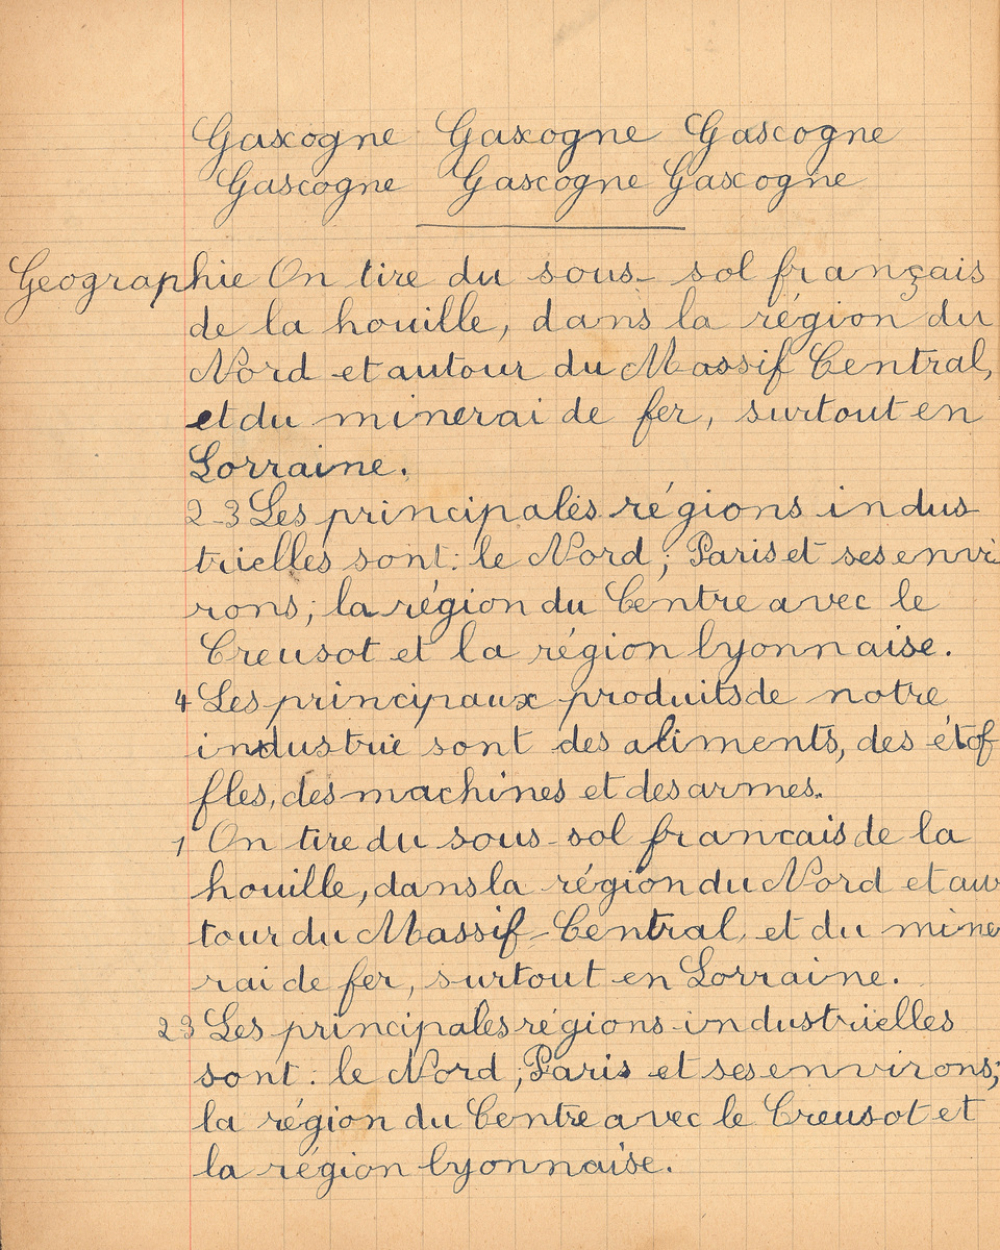 Gascogne Gascogne Gascogne
Gascogne Gascogne Gascogne
Geographie On tire du sous-sol français
de la houille, dans la région du
Nord et autour du Massif Central,
et du minerai de fer, surtout en
Lorraine.
2-3 Les principales régions indus
trielles sont: le Nord; Paris et ses envi
rons; la région du Centre avec le
Creusot et la région lyonnaise.
4 Les principaux produits de notre
industrie sont des aliments, des étof
fles, des machines et des armes.
1 On tire du sous-sol francais de la
houille, dans la région du Nord et au
tour du Massif-Central, et du mine
rai de fer, surtout en Lorraine.
23 Les principales régions industrielles
sont: le Nord; Paris et ses environs;
la région du Centre avec le Creusot et
la région lyonnaise.